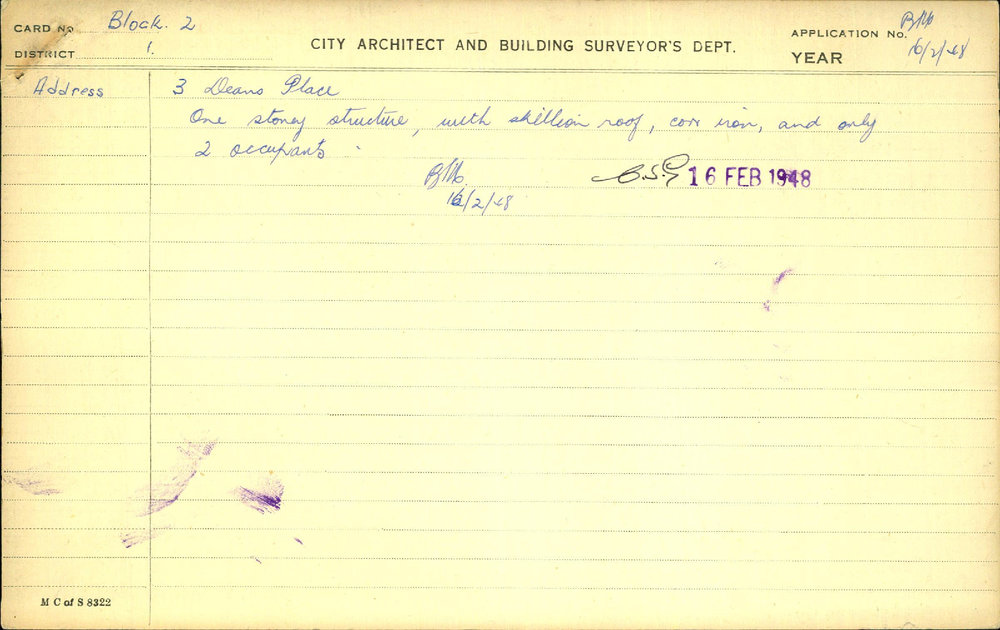 CARD No Block. 2
DISTRICT 1.
CITY ARCHITECT AND BUILDING SURVEYOR'S DEPT.
APPLICATION No.
YEAR 16/2/48
Address 3 Deans Place
One storey structure, with skillion roof, corr iron, and only
2 occupants.
16 FEB 1948
16/2/48
M C of S 8322